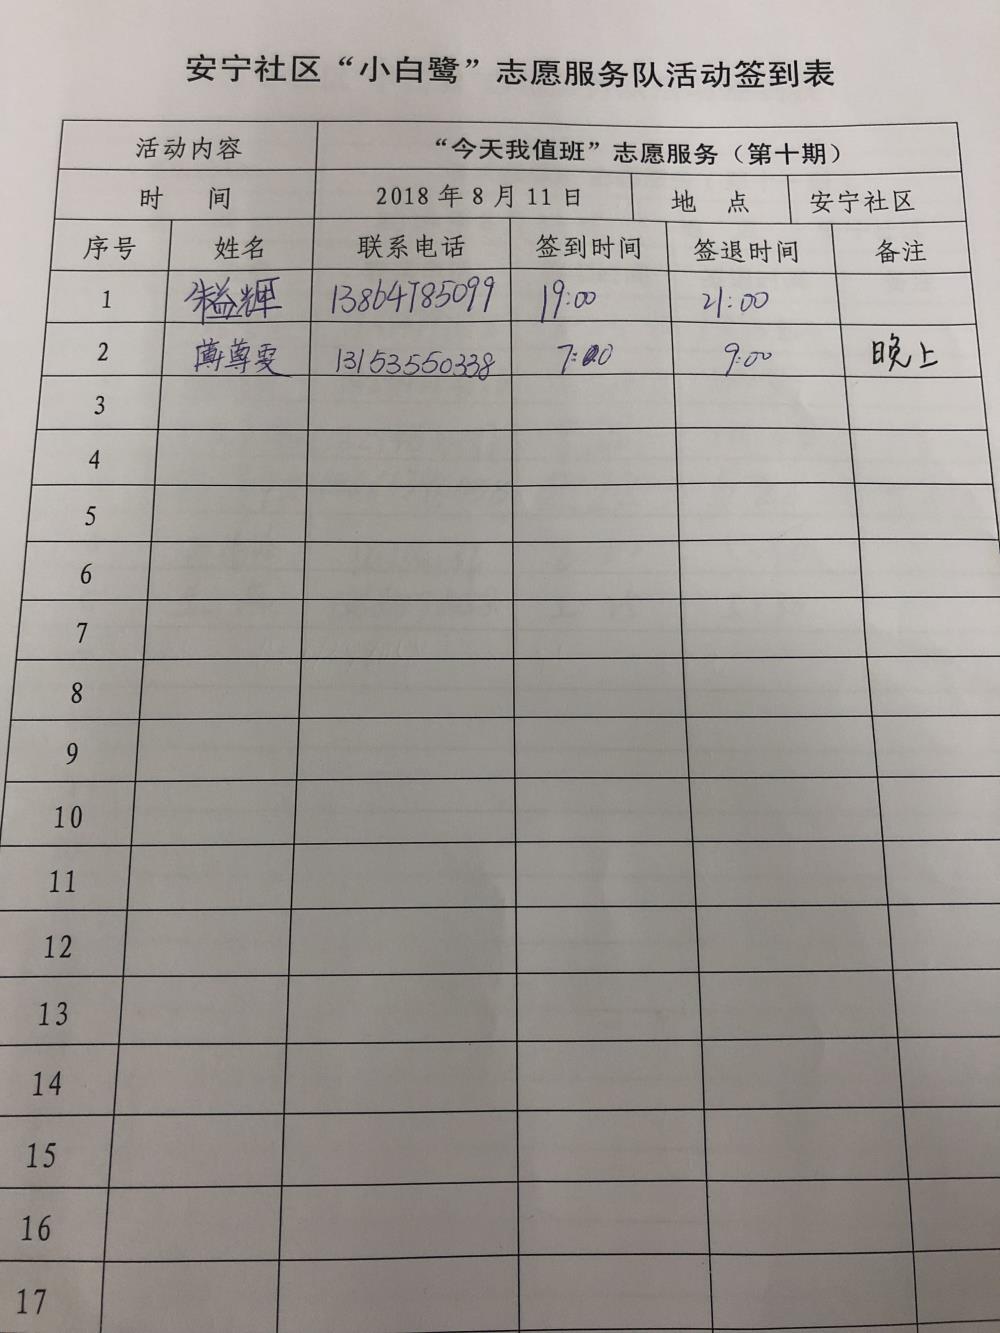 安宁社区“小白鹭”志愿服务队活动签到表
活动内容 “今天我值班”志愿服务（第十期）
时 间 2018 年 8 月 11 日 地 点 安宁社区
序号 姓名 联系电话 签到时间 签退时间 备注
1 13864785099 19:00 21:00
2 13153550338 7:00 9:00 晚上
3
4
5
6
7
8
9
10
11
12
13
14
15
16
17